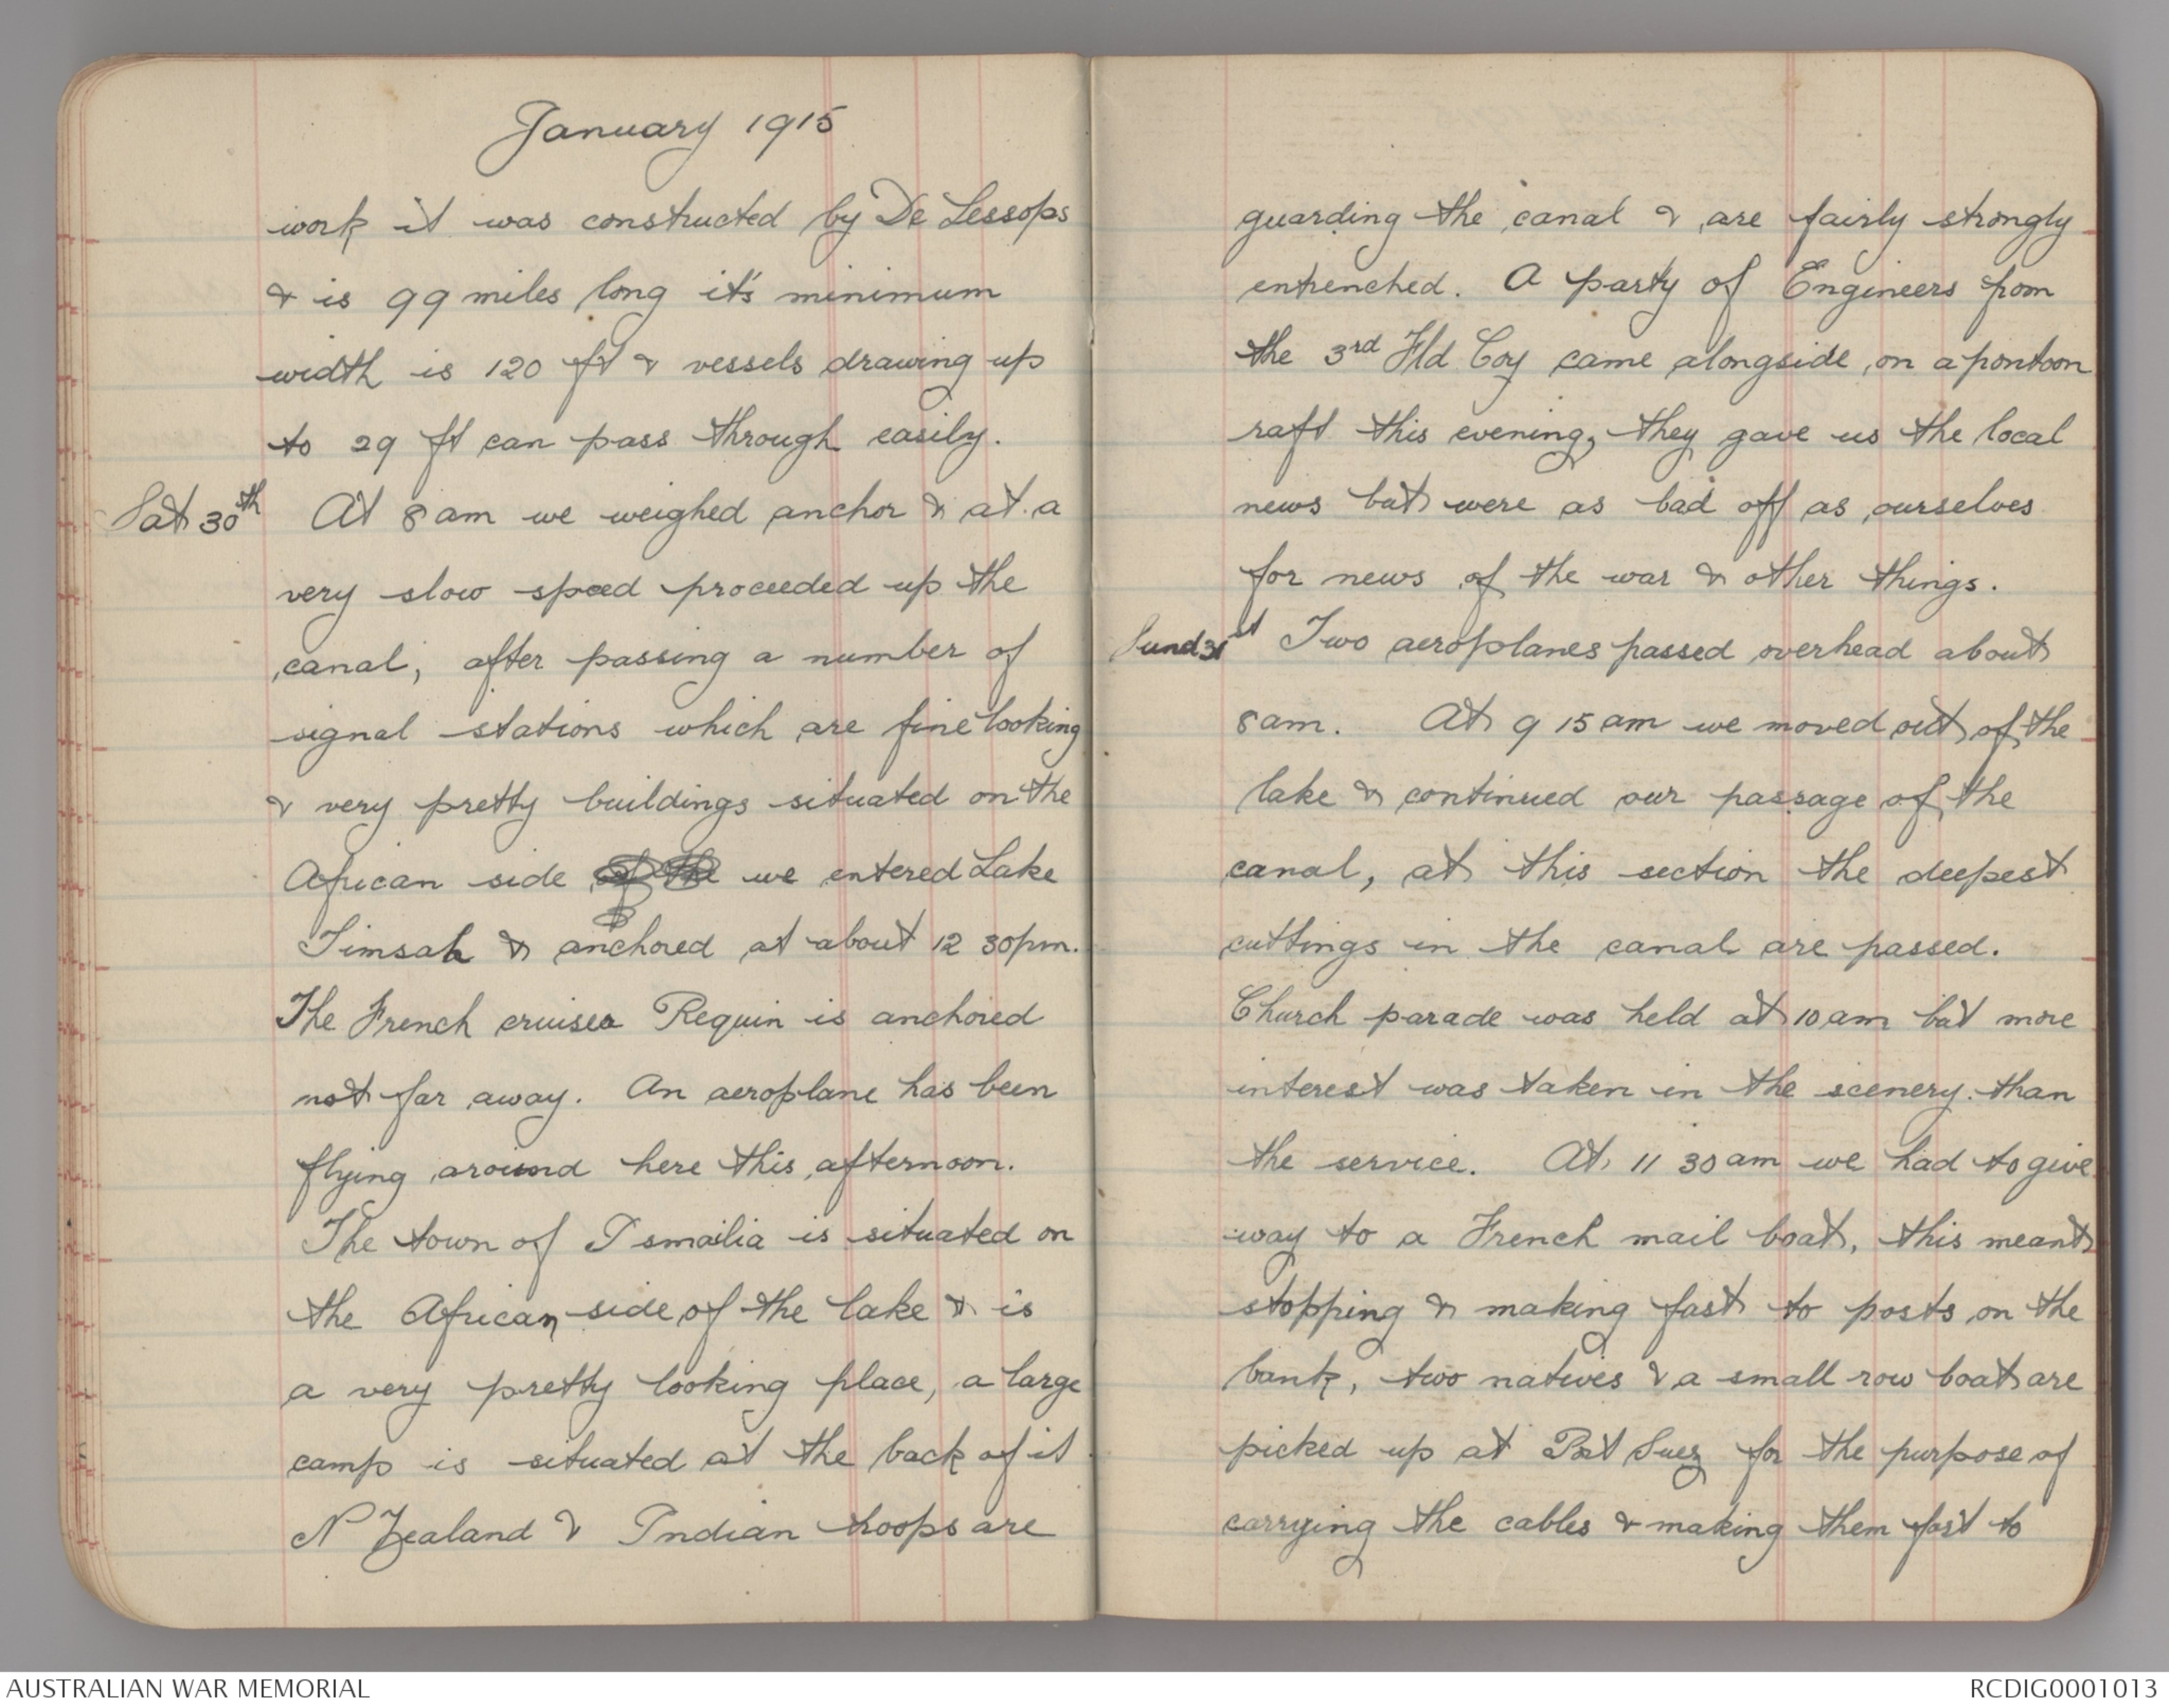 January 1915
work it was constructed by De Lessops
& is 99 miles long it's minimum
width is 120 ft & vessels drawing up
to 29 ft can pass through easily.
Sat 30th At 8 am we weighed anchor & at a
very slow speed proceeded up the
canal, after passing a number of
signal stations which are fine looking
& very pretty buildings situated on the
African side of the we entered Lake
Timsah & anchored at about 12 30pm.
The French cruiser Requin is anchored
not far away. An aeroplane has been
flying around here this afternoon.
The town of Ismailia is situated on
the African side of the lake & is
a very pretty looking place, a large
camp is situated at the back of it
N Zealand & Indian troops are
guarding the canal & are fairly strongly
entrenched. A party of Engineers from
the 3rd Fld Coy came alongside on a pontoon
raft this evening, they gave us the local
news but were as bad off as ourselves
for news of the war & other things.
Sund 31st Two aeroplanes passed overhead about
8 am. At 9 15 am we moved out of the
lake & continued our passage of the
canal, at this section the deepest
cuttings in the canal are passed.
Church parade was held at 10 am but more
interest was taken in the scenery than
the service. At 11 30 am we had to give
way to a French mail boat, this meant
stopping & making fast to posts on the
bank, two natives & a small row boat are
picked up at Port Suez for the purpose of
carrying the cables & making them fast to
AUSTRALIAN WAR MEMORIAL
RCDIG0001013